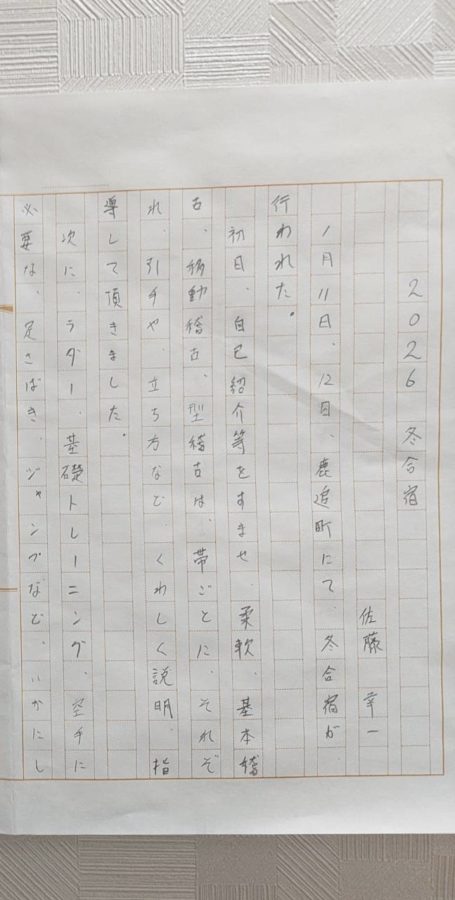 2026 冬合宿
佐藤 幸一
1月11日、12日、鹿追町にて、冬合宿が
行われた。
初日、自己紹介等をすませ、柔軟、基本稽
古、移動稽古、型稽古は、帯ごとに、それぞ
れ、引手や、立ち方など、くわしく説明、指
導して頂きました。
次に、ラダー、基礎トレーニング、空手に
必要な、足さばき、ジャンプなど、いかにし